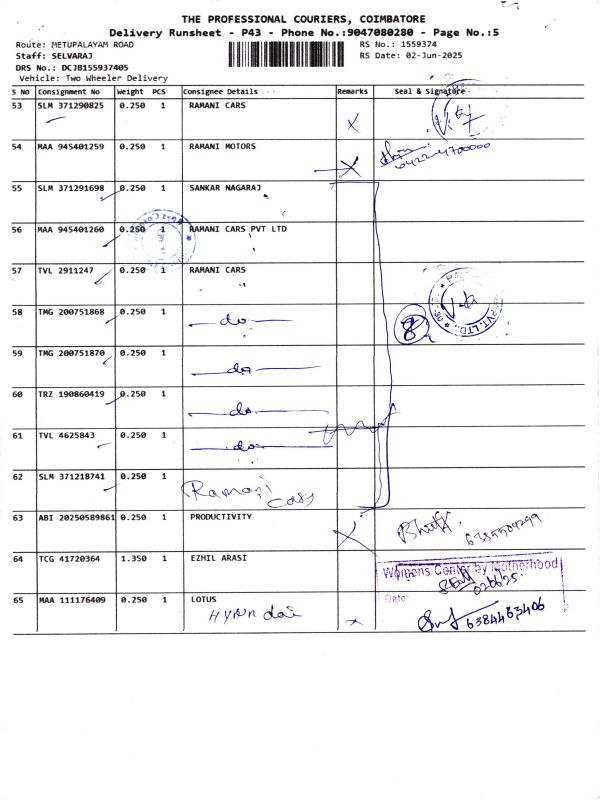 THE PROFESSIONAL COURIERS, COIMBATORE
Delivery Runsheet - P43 - Phone No.:9047080280 - Page No.:5
Route: METUPALAYAM ROAD
RS No.: 1559374
Staff: SELVARAJ
RS Date: 02-Jun-2025
DRS No.: DCJB155937405
Vehicle: Two Wheeler Delivery
S No Consignment No Weight PCS Consignee Details Remarks Seal & Signature
53 SLM 371290825 0.250 1 RAMANI CARS X
54 MAA 945401259 0.250 1 RAMANI MOTORS X
0422-4700000
55 SLM 371291698 0.250 1 SANKAR NAGARAJ
56 MAA 945401260 0.250 1 RAMANI CARS PVT LTD
57 TVL 2911247 0.250 1 RAMANI CARS
58 TMG 200751868 0.250 1 do
8
PVT.LTD.
59 TMG 200751870 0.250 1 do
60 TRZ 190860419 0.250 1 do
61 TVL 4625843 0.250 1 do
62 SLM 371218741 0.250 1 Ramani Cars
63 ABI 20250589861 0.250 1 PRODUCTIVITY X
6385504299
64 TCG 41720364 1.350 1 EZHIL ARASI
Womens Center by Motherhood
02/6/25
Date:
65 MAA 111176409 0.250 1 LOTUS
HYUNdai x 6384463406